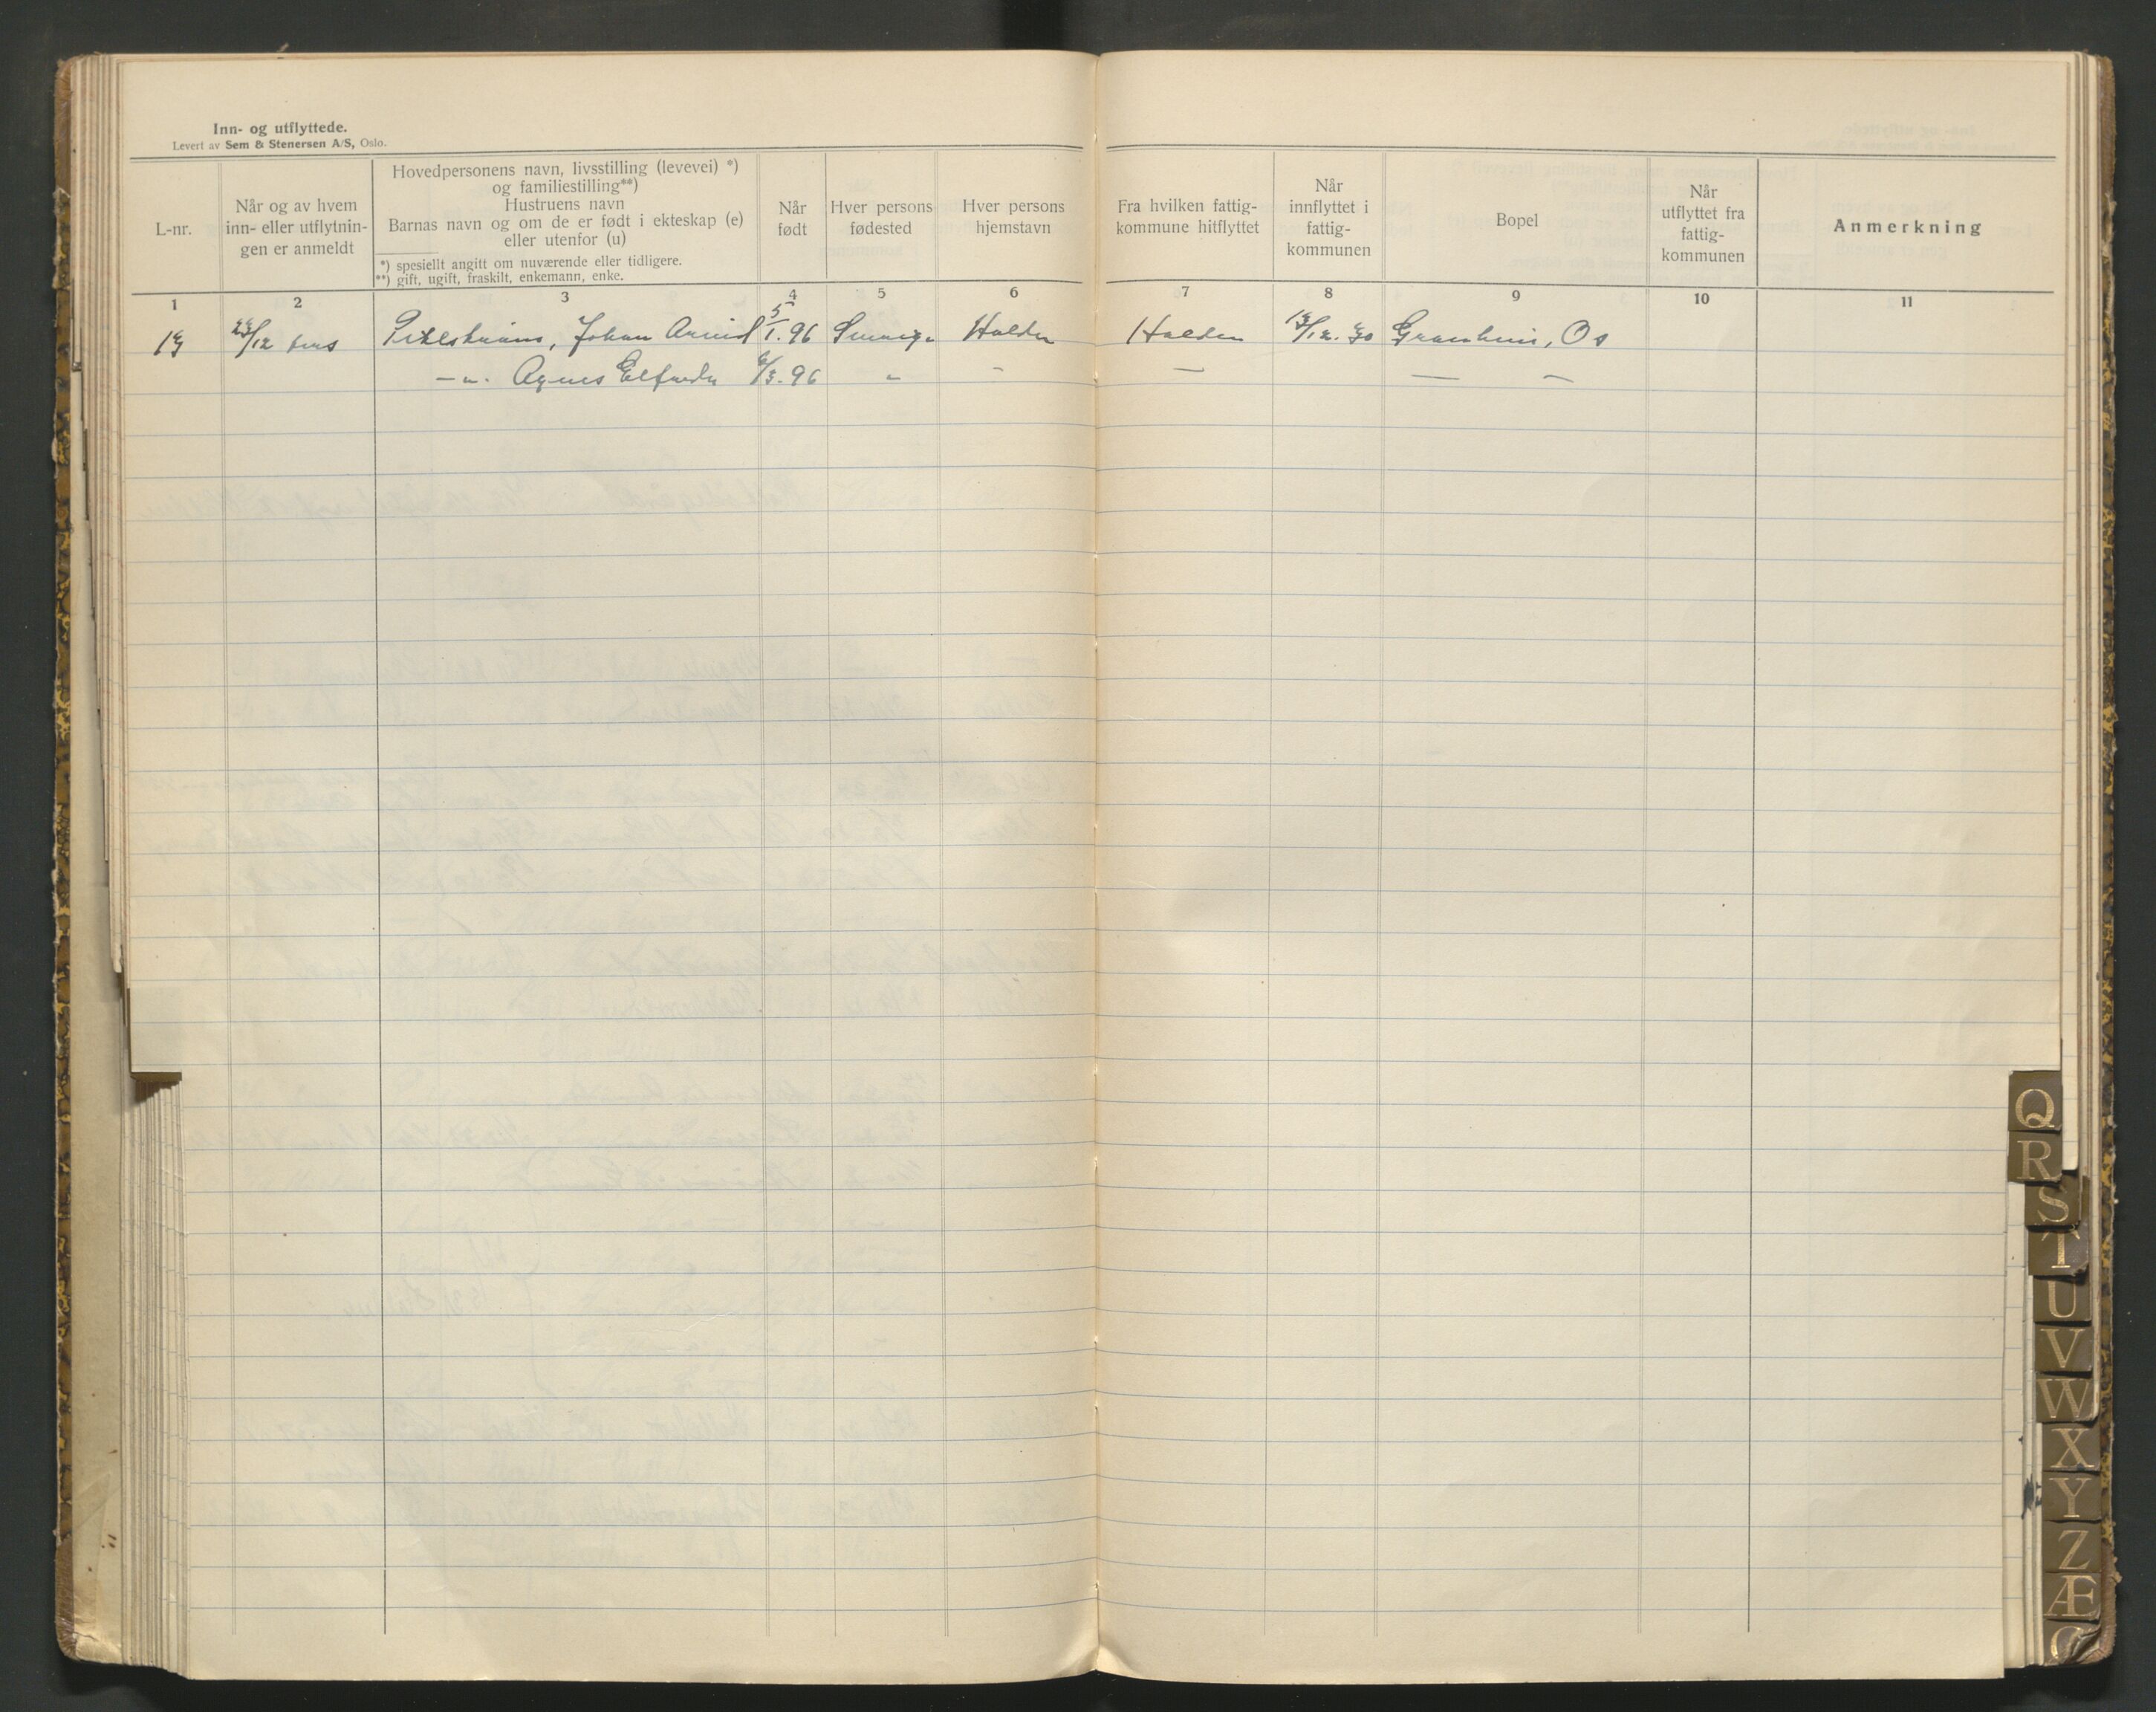 Inn- og utflyttede.
Levert av Sem & Stenersen A/S, Oslo.
L-nr.
Når og av hvem
inn- eller utflytnin-
gen er anmeldt
Hovedpersonens navn, livsstilling (levevei) *)
og familiestilling**)
Hustruens navn
Barnas navn og om de er født i ekteskap (e)
eller utenfor (u)
*) spesiellt angitt om nuværende eller tidligere.
**) gift, ugift, fraskilt, enkemann, enke.
Når
født
Hver persons
fødested
Hver persons
hjemstavn
Fra hvilken fattig-
kommune hitflyttet
Når
innflyttet i
fattig-
kommunen
Bopel
Når
utflyttet fra
fattig-
kommunen
Anmerkning
1 2 3 4 5 6 7 8 9 10 11
Johan 5/1. 96 Halden Halden Os
-"- Agnes 96 " - - — -
Q
R
S
T
U
V
W
X
Y
Z
Æ